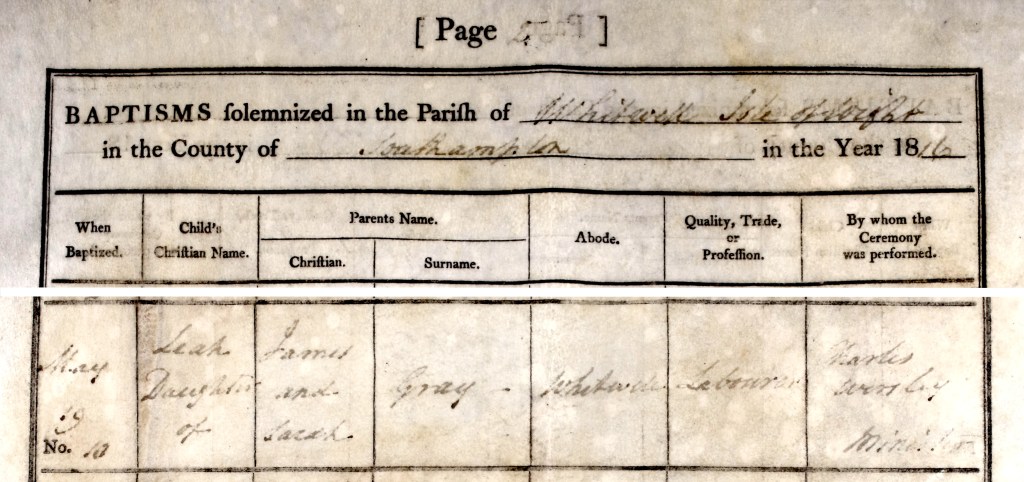 [ Page 2 ]
BAPTISMS ſolemnized in the Pariſh of Whitwell Isle of Wight
in the County of Southampton in the Year 1816
When Baptized.
Child's Chriſtian Name.
Parents Name.
Chriſtian.
Surname.
Abode.
Quality, Trade, or Profeſſion.
By whom the Ceremony was performed.
May
19
No. 13
Leah
Daughter
of
James
and
Sarah
Gray
Whitwell
Labourer
Charles
Worsley
Minister